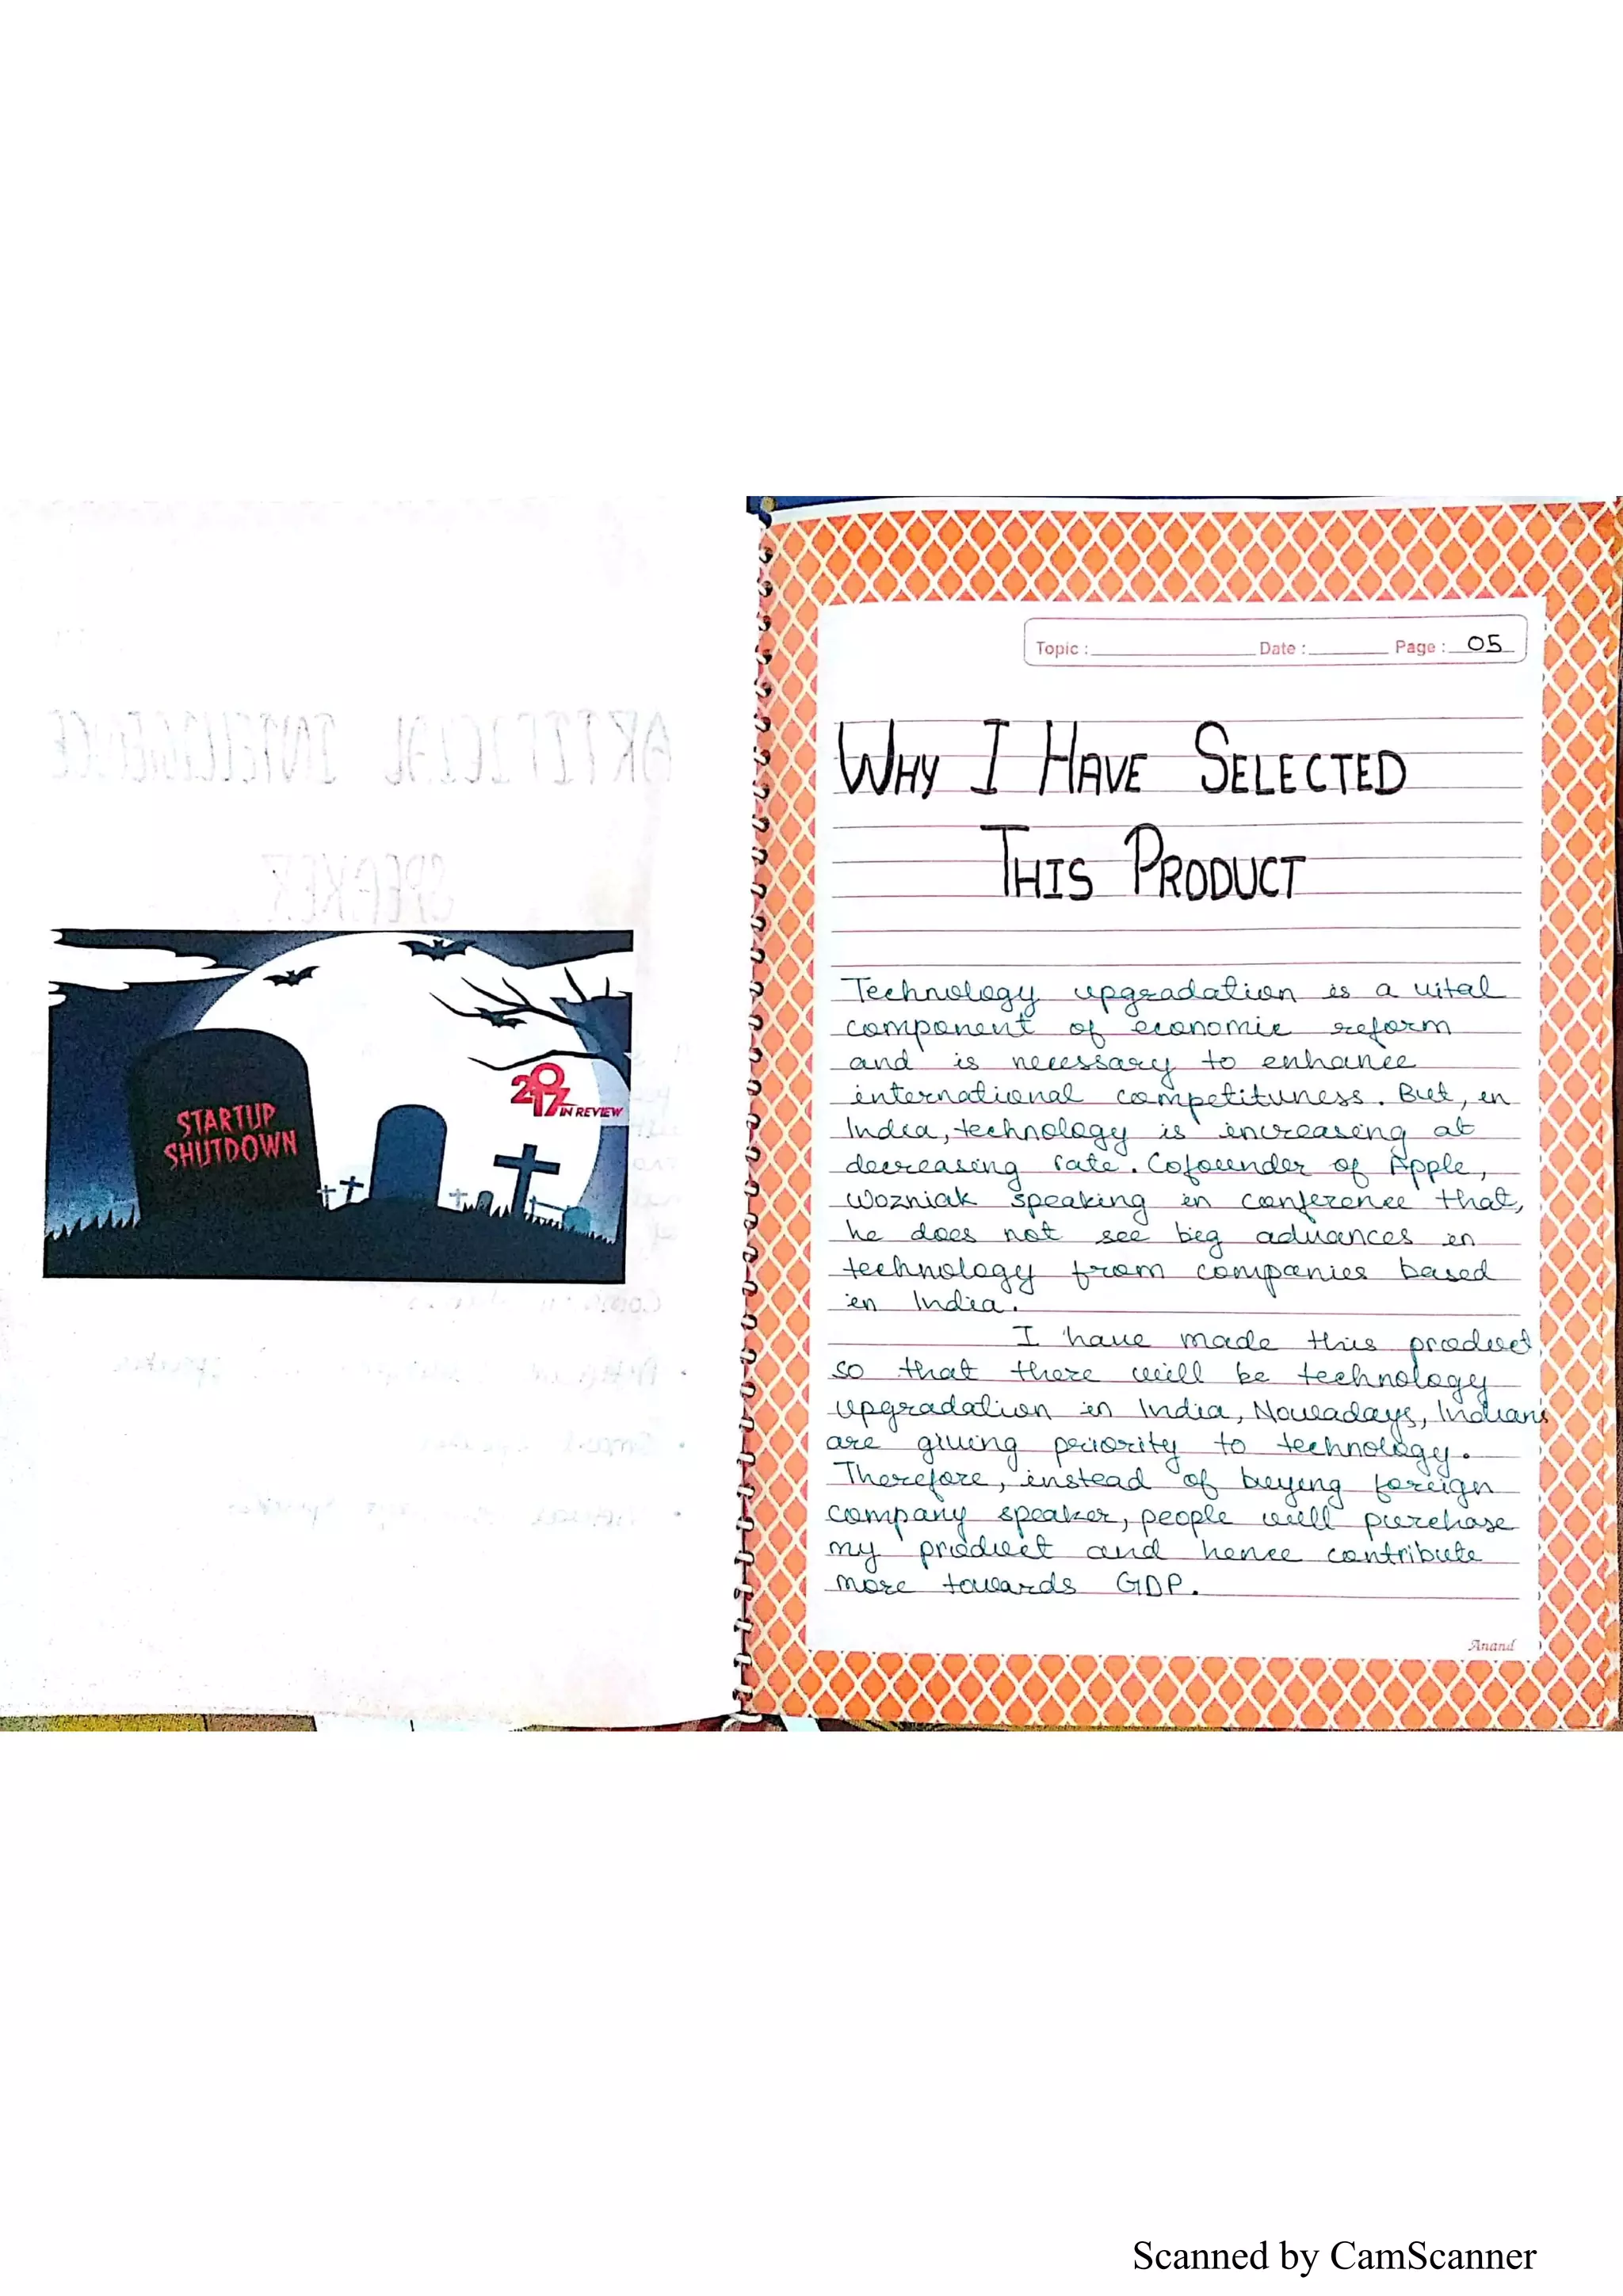 STARTUP
SHUTDOWN
2017 IN REVIEW
Topic : Date : Page : 05
WHY I HAVE SELECTED
THIS PRODUCT
Technology upgradation is a vital
component of economic reform
and is necessary to enhance
international competituness. But, in
India, technology is increasing at
decreasing rate. Cofounder of Apple,
Wozniak speaking in conference that,
he does not see big advances in
technology from companies based
in India.
I have made this product,
so that there will be technology
upgradation in India, Nowadays, Indians
are giving periority to technology.
Therefore, instead of buying foreign
company speaker, people will purchase
my product and hence contribute
more towards GDP.
Anand
Scanned by CamScanner